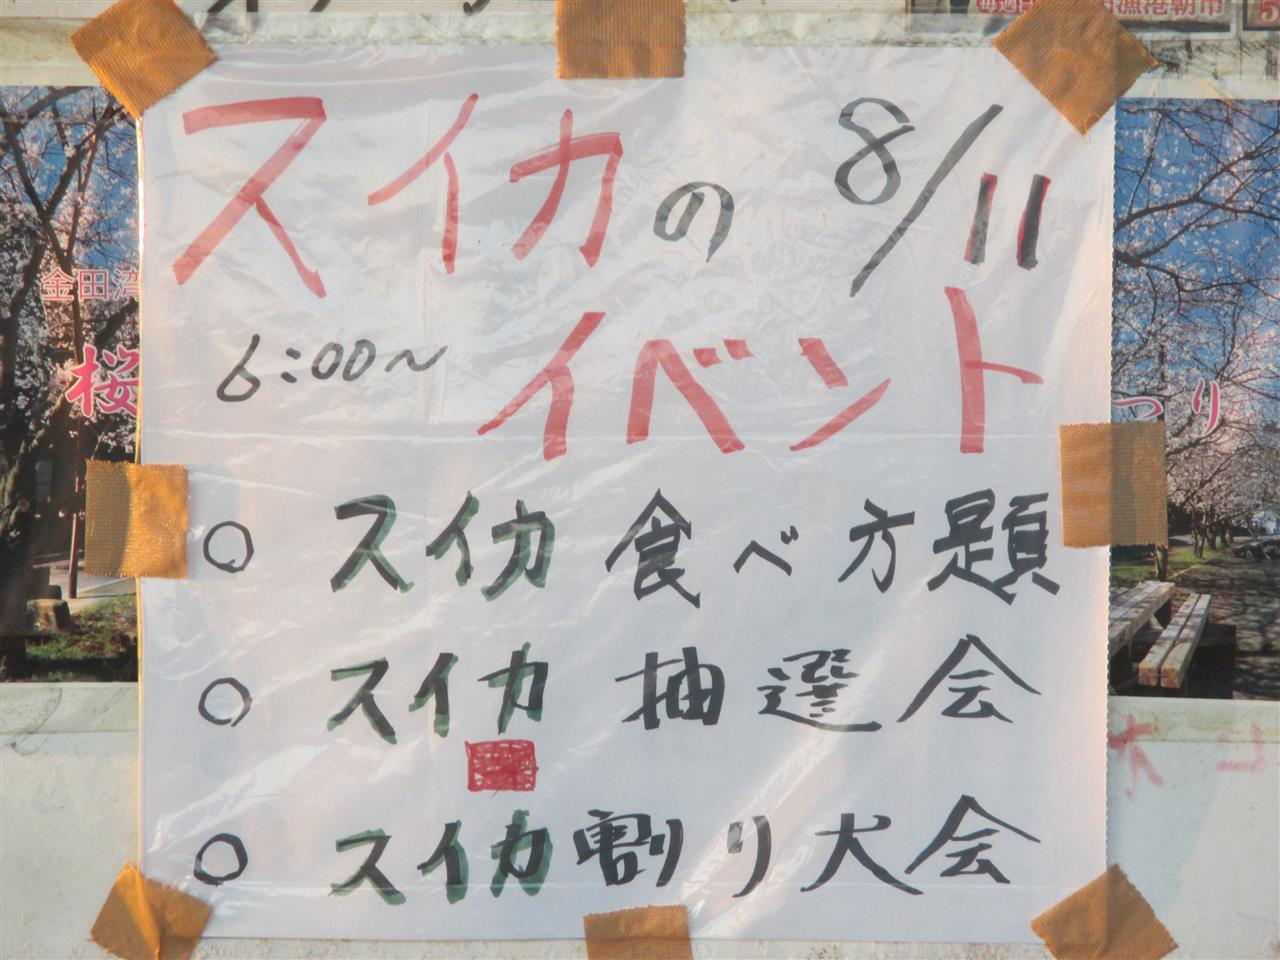 毎週日
漁港朝市
スイカの 8/11
金田湾
6:00〜 イベント
桜 つり
○ スイカ 食べ方題
○ スイカ 抽選会
○ スイカ割り犬会